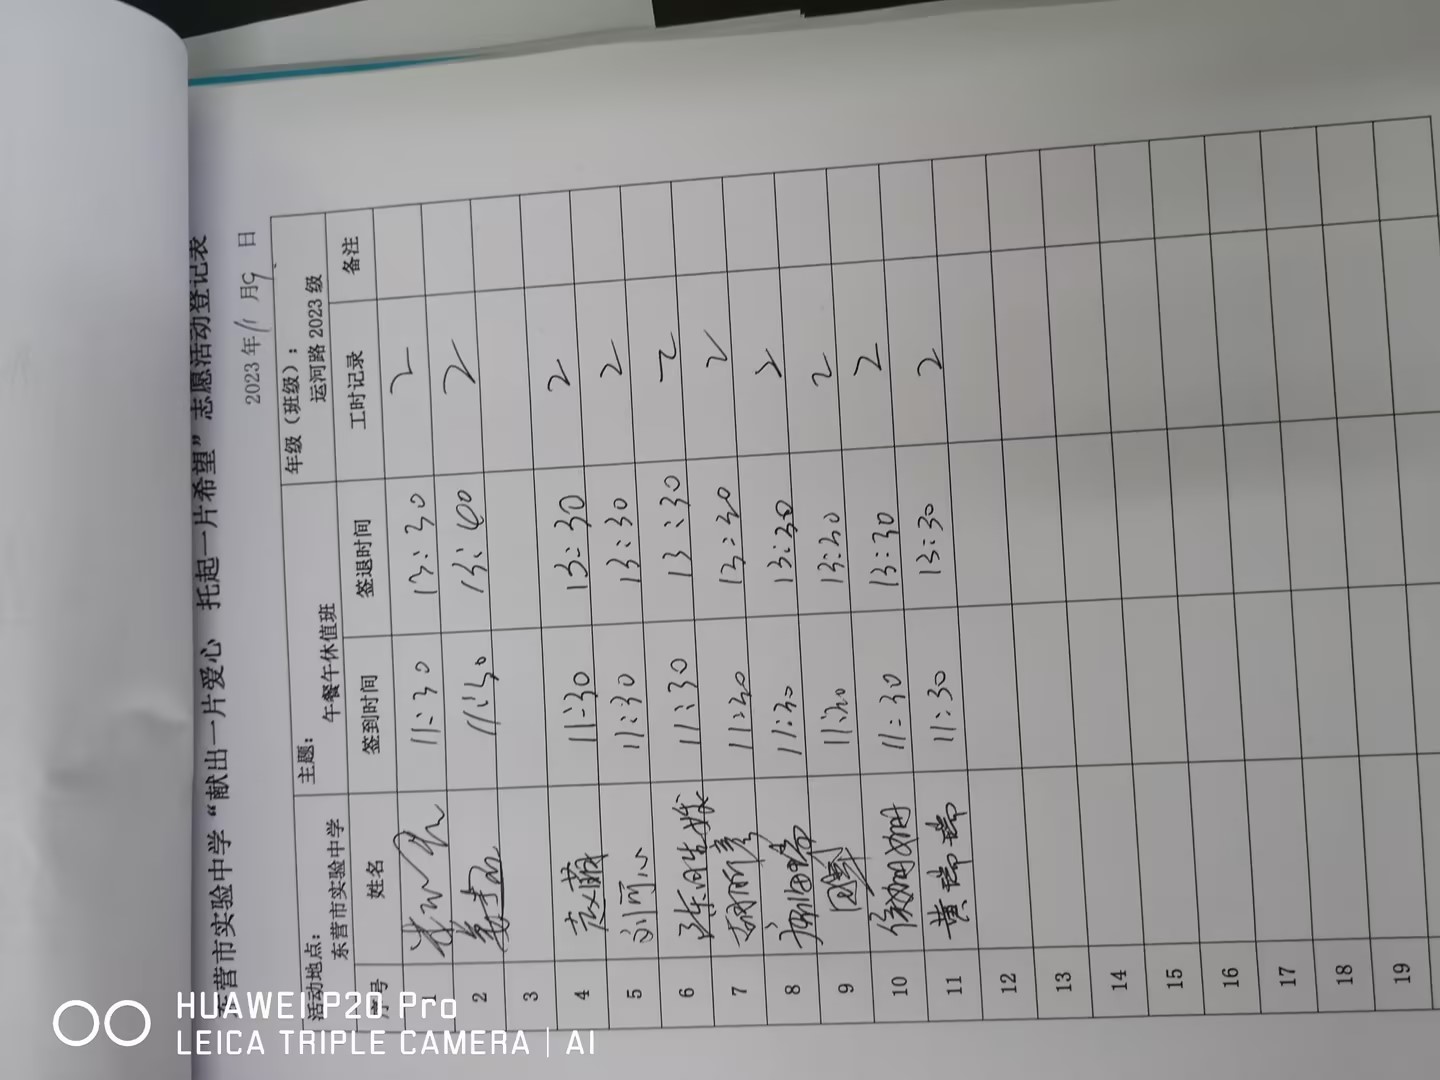 东营市实验中学“献出一片爱心 托起一片希望”志愿活动登记表
2023年11月9日
活动地点: 东营市实验中学 主题: 午餐午休值班 年级（班级）: 运河路2023级
序号 姓名 签到时间 签退时间 工时记录 备注
1 11:30 13:30 2
2 11:30 13:40 2
3
4 赵薇 11:30 13:30 2
5 11:30 13:30 2
6 11:30 13:30 2
7 11:30 13:30 2
8 11:30 13:30 2
9 11:30 13:30 2
10 11:30 13:30 2
11 黄瑞瑞 11:30 13:30 2
12
13
14
15
16
17
18
19
HUAWEI P20 Pro
LEICA TRIPLE CAMERA | AI